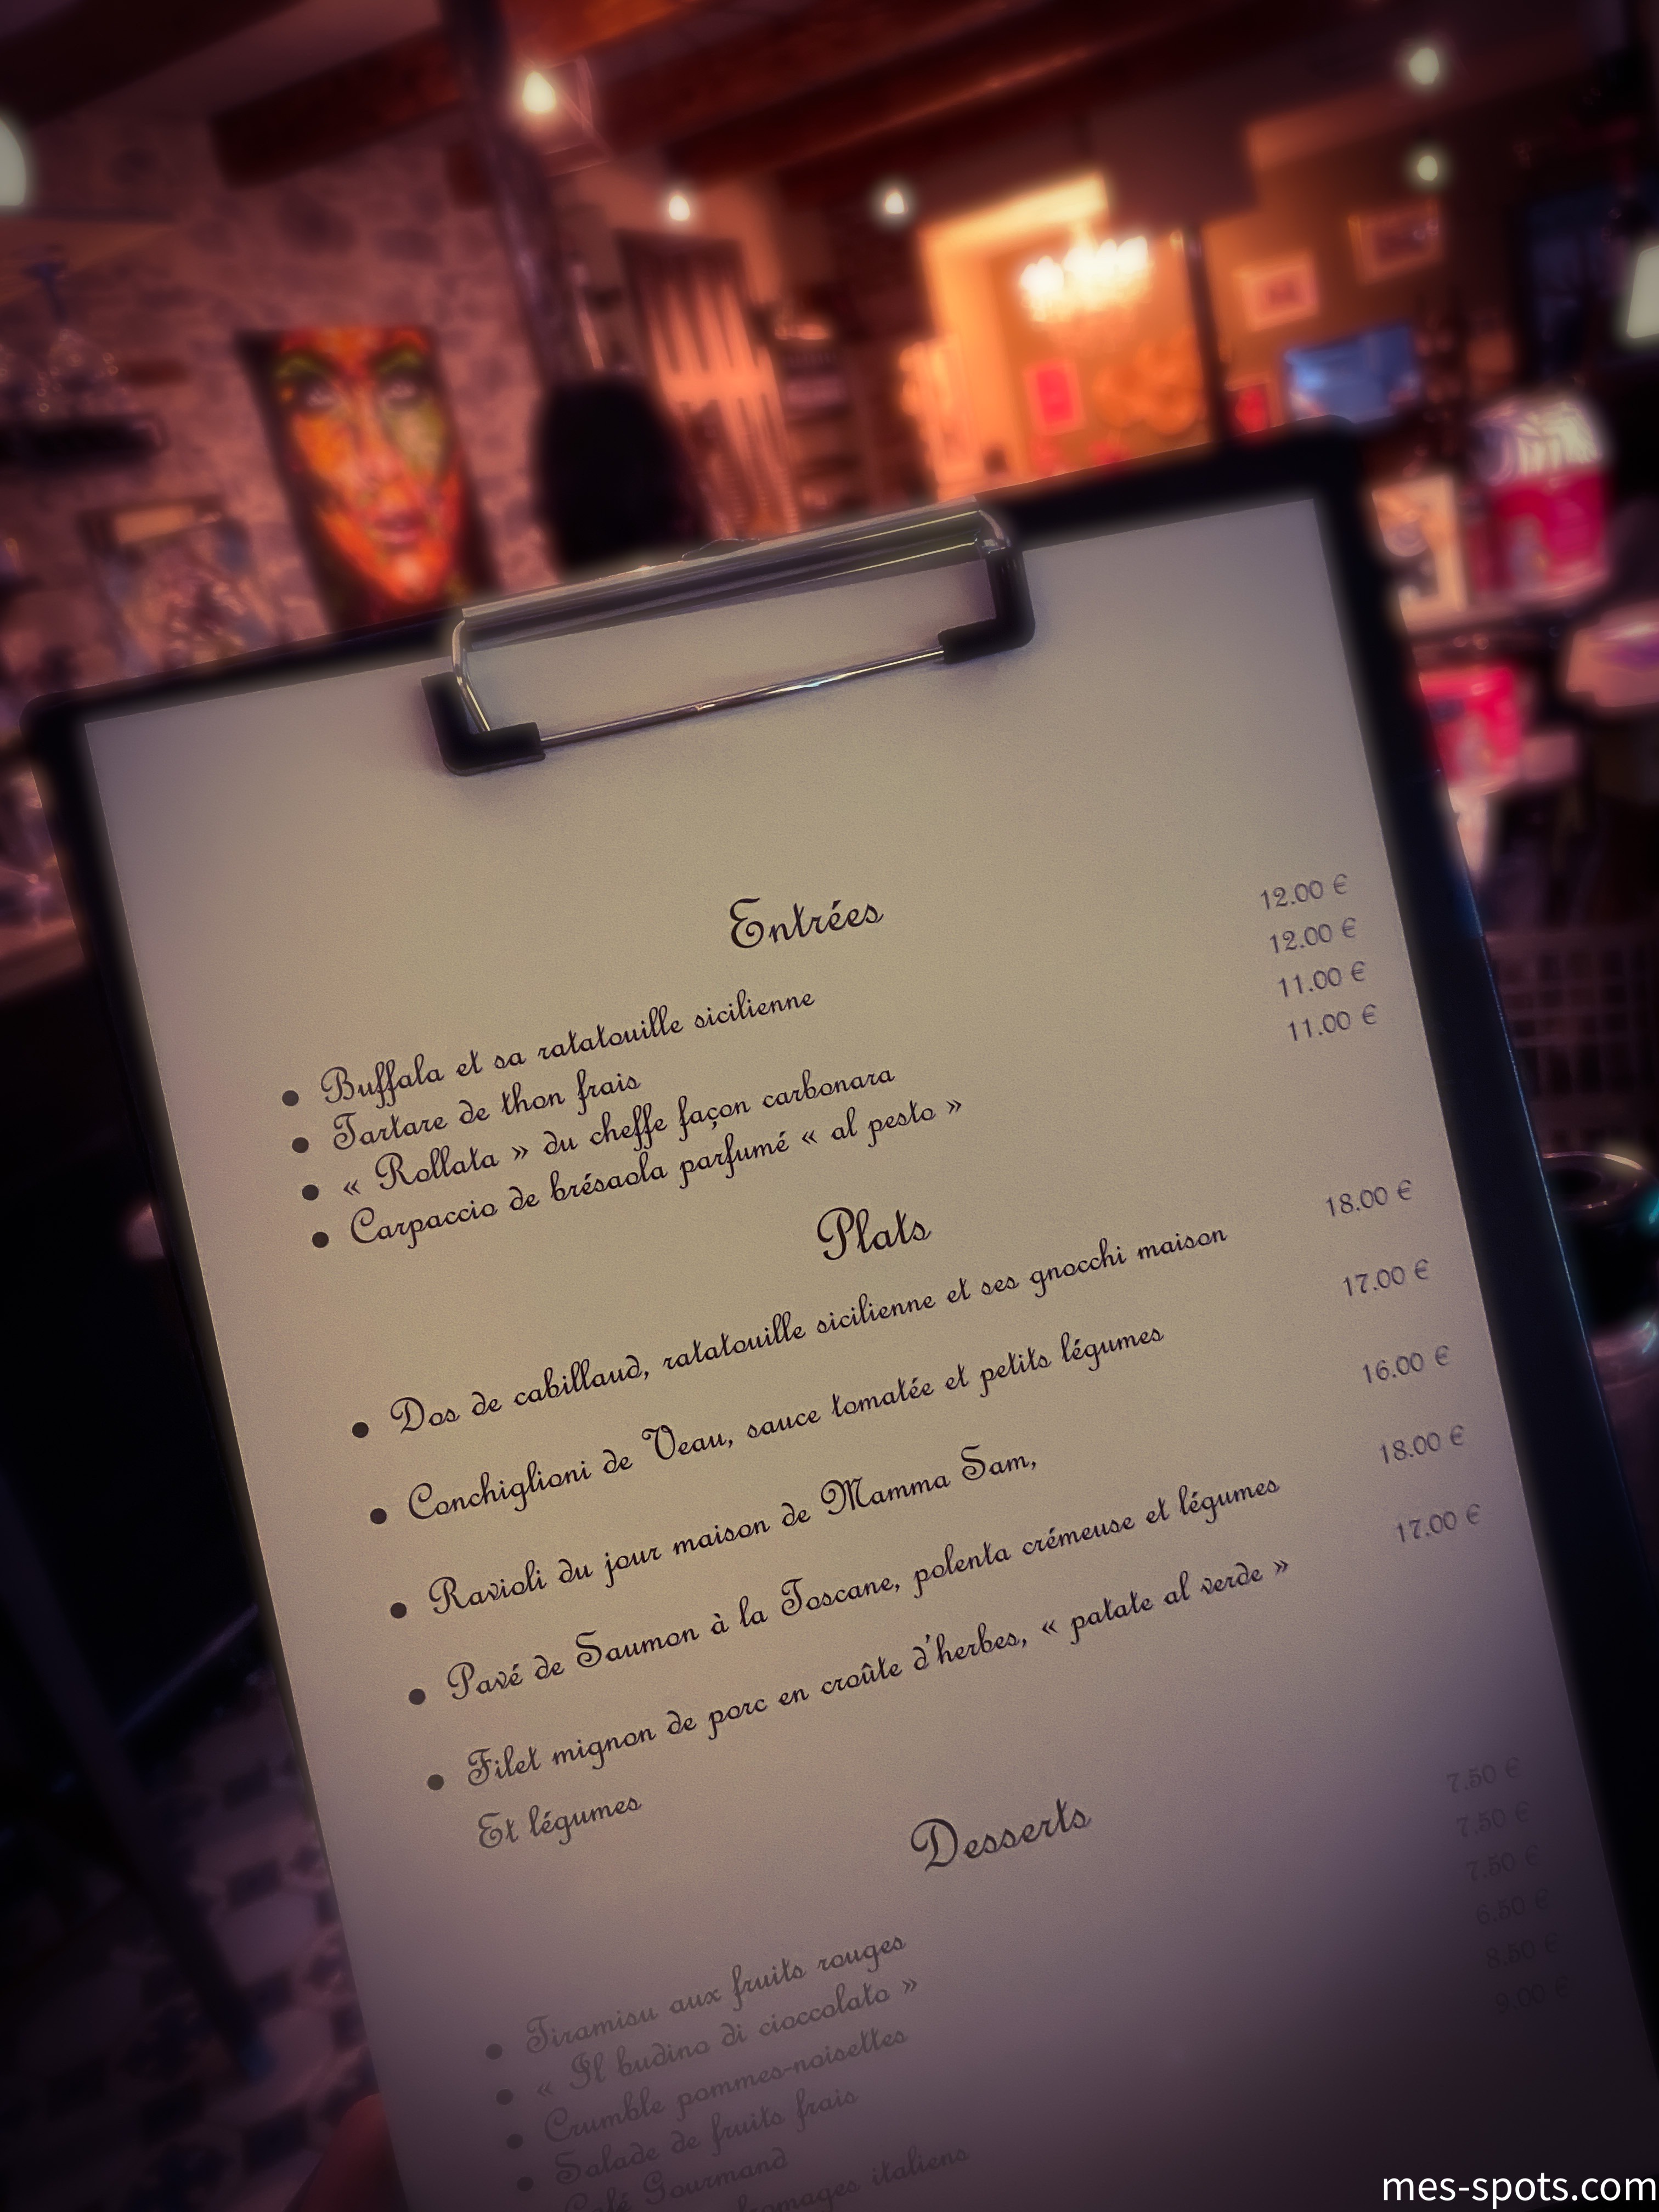 Entrées
Buffala et sa ratatouille sicilienne 12.00 €
Tartare de thon frais 12.00 €
« Rollata » du cheffe façon carbonara 11.00 €
Carpaccio de brésaola parfumé « al pesto » 11.00 €
Plats
Dos de cabillaud, ratatouille sicilienne et ses gnocchi maison 18.00 €
Conchiglioni de Veau, sauce tomatée et petits légumes 17.00 €
Ravioli du jour maison de Mamma Sam, 16.00 €
Pavé de Saumon à la Toscane, polenta crémeuse et légumes 18.00 €
Filet mignon de porc en croûte d'herbes, « patate al verde » 17.00 €
Et légumes
Desserts
Tiramisu aux fruits rouges 7.50 €
« Il budino di cioccolato » 7.50 €
Crumble pommes-noisettes 7.50 €
Salade de fruits frais 6.50 €
Café Gourmand 8.50 €
fromages italiens 9.00 €
mes-spots.com